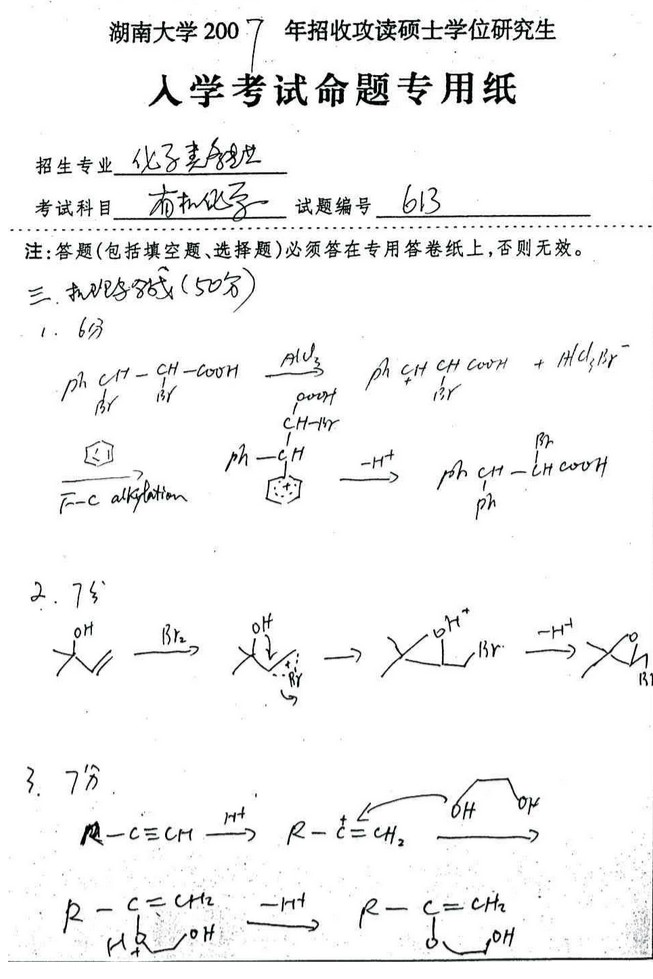 湖南大学 2007 年招收攻读硕士学位研究生
入学考试命题专用纸
招生专业 化学类各专业
考试科目 有机化学 试题编号 613
注:答题(包括填空题、选择题)必须答在专用答卷纸上,否则无效。
三. 机理学字题(50分)
1. 6分
Ph CH - CH - COOH AlCl3 Ph CH CH COOH + AlCl3Br-
Br Br + Br
COOH
CH-Br
Ph - CH -H+ Ph CH - CH COOH
F-C alkylation + Ph Br
2. 7分
OH Br2 OH + Br OH+ Br -H+ O Br
3. 7分
R - C≡CH H+ R - C+=CH2 OH OH
R - C=CH2 -H+ R - C=CH2
H O+ OH O OH